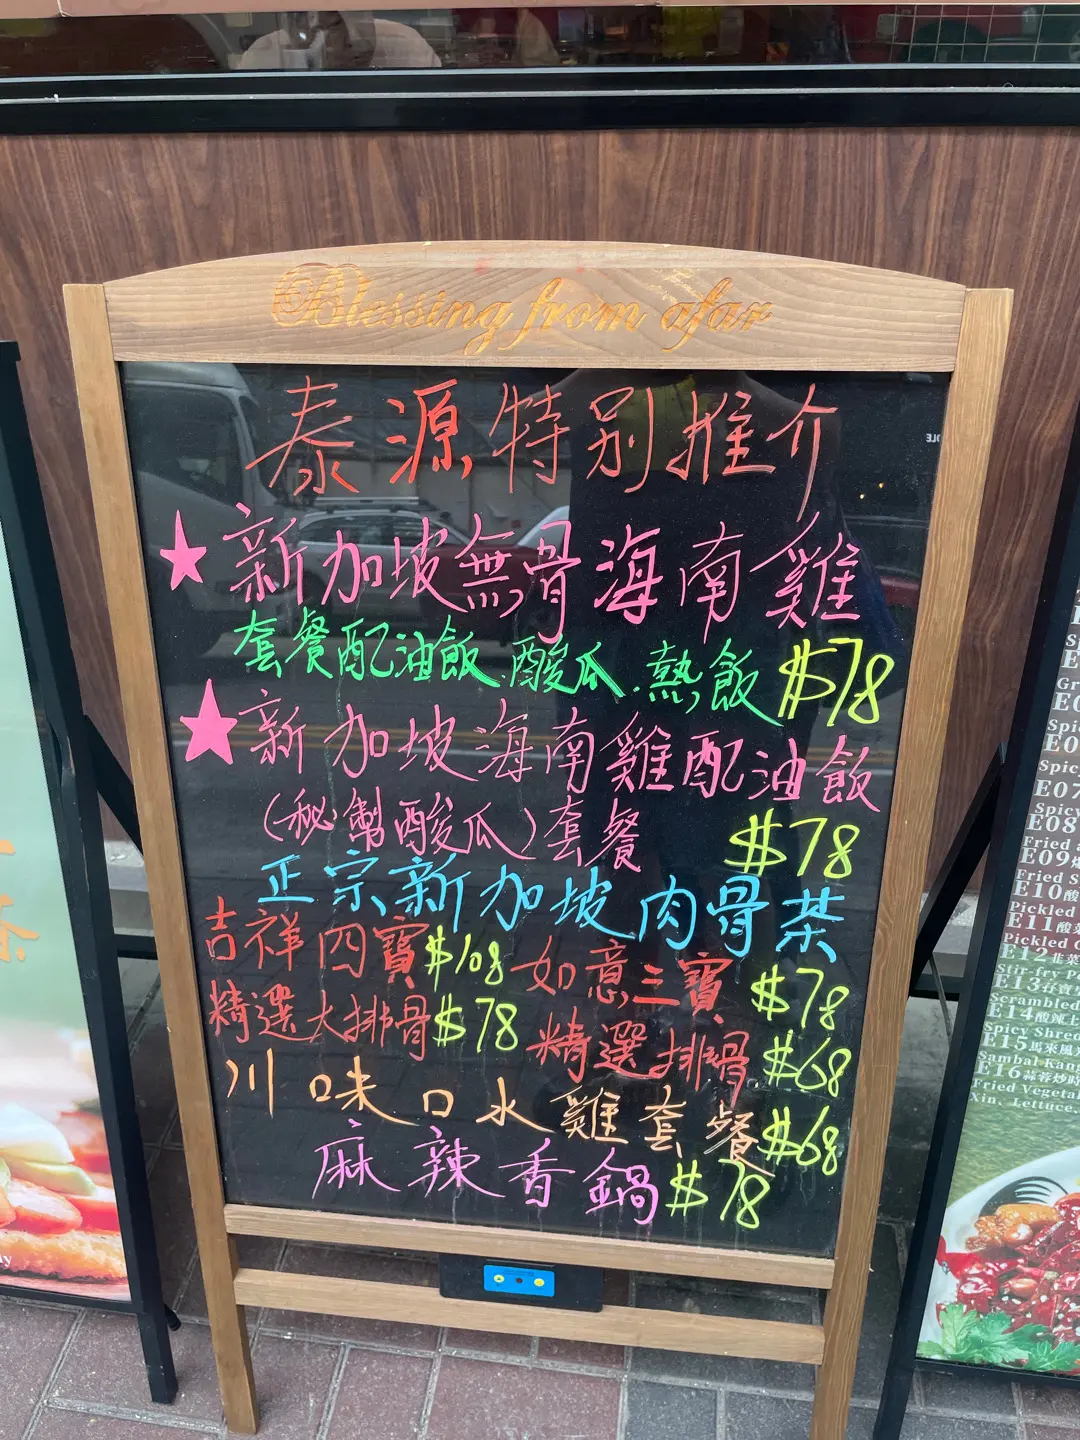 Blessing from afar
泰源特別推介
★新加坡無骨海南雞
套餐配油飯.酸瓜.熱飯 $78
★新加坡海南雞配油飯
(秘製酸瓜)套餐 $78
正宗新加坡肉骨茶
吉祥四寶$108 如意三寶 $78
精選大排骨$78 精選排骨 $68
川味口水雞套餐 $68
麻辣香鍋 $78
Spicy
E07
Spicy
E08
Fried
E09
Fried
E10
Pickled
E11酸菜
Pickled
E12韭菜
Stir-fry
E13
Scrambled
E14酸辣土
Spicy Shred
E15馬來風光
Sambal Kang
E16蒜蓉炒時
Fried Vegetab
Xin, Lettuce.